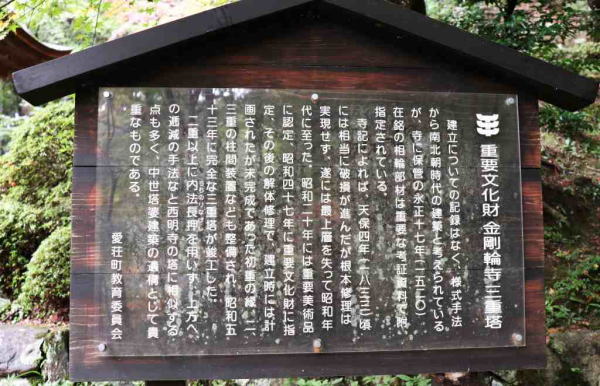 重要文化財 金剛輪寺三重塔
建立についての記録はなく、様式手法
から南北朝時代の建築と考えられている
が、寺に保管の永正十七年(一五二〇)
在銘の相輪部材は重要な考証資料で附
指定されている。
寺記によれば、天保四年(一八三三)頃
には相当に破損が進んだが根本修理は
実現せず、遂には最上層を失って昭和年
代に至った。昭和二十年には重要美術品
に認定、昭和四十七年に重要文化財に指
定、その後の解体修理で、建立時には計
画されたが未完成であった初重の縁、二、
三重の柱間装置なども整備され、昭和五
十三年に完全な三重塔が竣工した。
二重以上に内法長押を用いず、上方へ
の逓減の手法など西明寺の塔に相似する
点も多く、中世塔婆建築の遺構として貴
重なものである。
愛荘町教育委員会